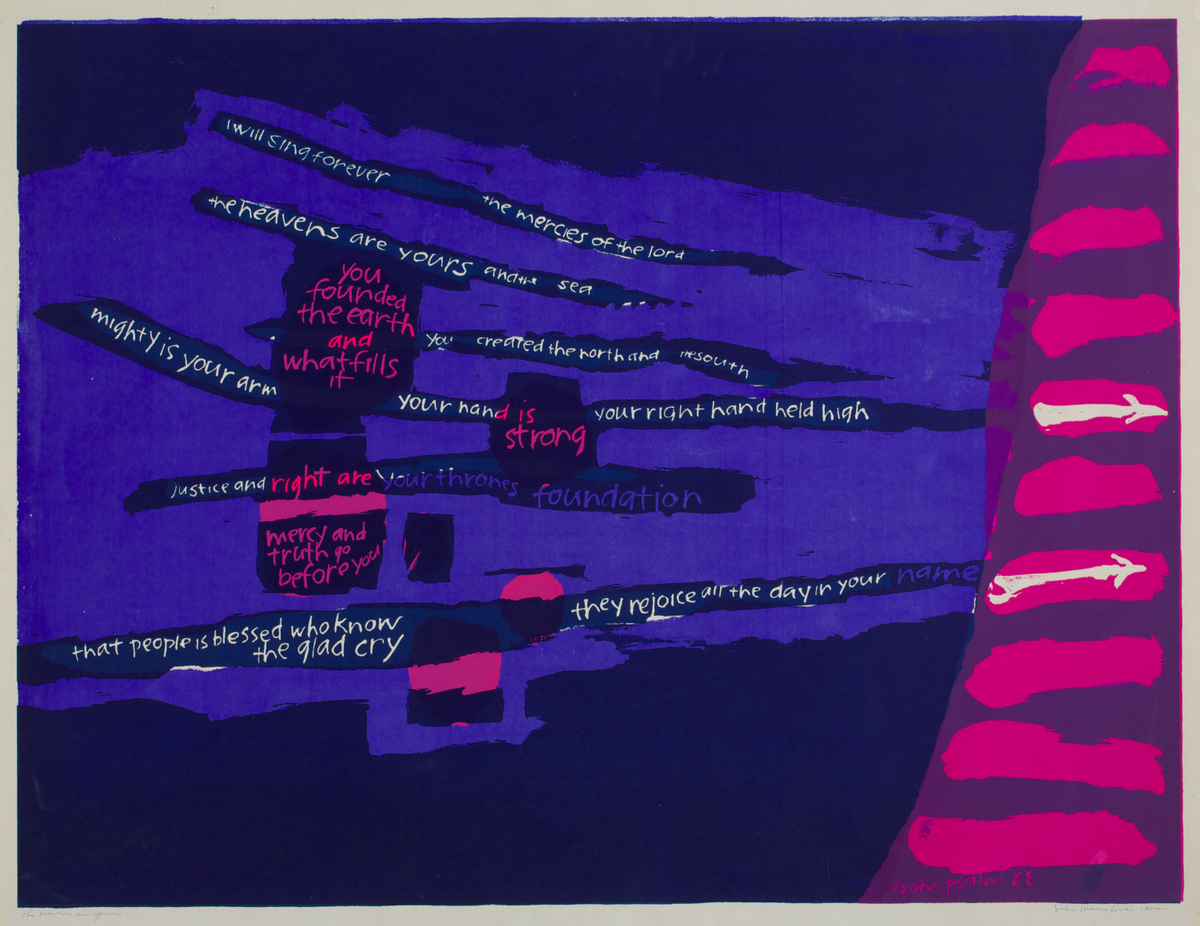 i will sing forever the mercies of the lord
the heavens are yours and the sea
you
founded
the earth
and
what fills
it
you created the north and the south
mighty is your arm
your hand is
strong
your right hand held high
justice and right are your thrones foundation
mercy and
truth go
before you
they rejoice all the day in your name
that people is blessed who know
the glad cry
from psalm 88
the heavens are yours